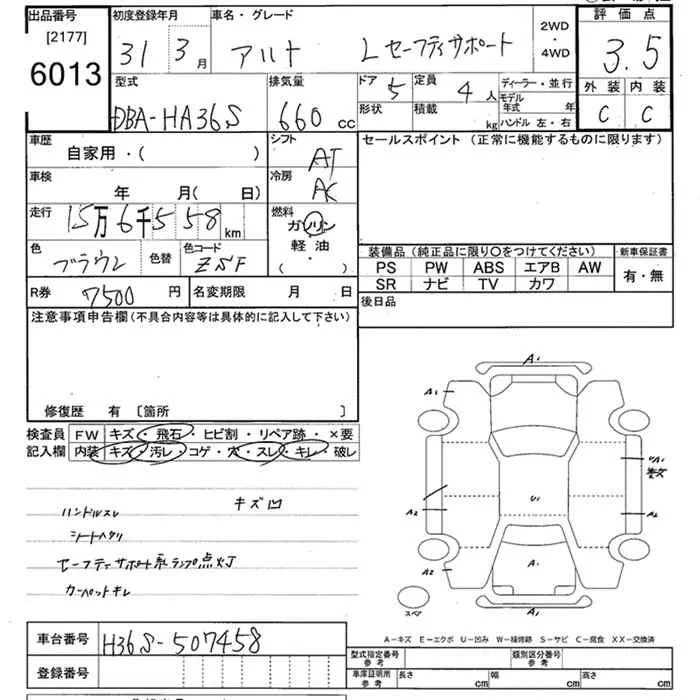 出品番号 初度登録年月 車名・グレード 2WD・4WD 評価点
[2177]
6013 31 3月 アルト Lセーフティサポート 3.5
型式 排気量 ドア 5 定員 4人 ディーラー・並行 外装 内装
DBA-HA36S 660cc 形状 積載 kg モデル年式 年 C C
ハンドル 左・右
車歴 シフト セールスポイント(正常に機能するものに限ります)
自家用・( ) AT
車検 冷房
年 月( 日) AC
走行 燃料
15万6千558km ガソリン
色 色替 色コード 軽油
ブラウン ZSF ( ・ )
装備品(純正品に限り〇をつけてください) 新車保証書
PS PW ABS エアB AW 有・無
SR ナビ TV カワ
R券 7500円 名変期限 月 日 後日品
注意事項申告欄(不具合内容等は具体的に記入して下さい)
修復歴 有 [箇所 ]
検査員 FW キズ・飛石・ヒビ割・リペア跡・×要
記入欄 内装 キズ・汚レ・コゲ・穴・スレ・キレ・破レ
キズ凹
ハンドルスレ
シートヘタリ
セーフティサポート系ランプ点灯
カーペットキレ
A1
A1
A2 U1 A2
A2 A1
スペア A1
A-キズ E-エクボ U-凹み W-補修跡 S-サビ C-腐食 XX-交換済
車台番号 HA36S-507458
登録番号
型式指定番号 参考 類別区分番号 参考
車庫証明用 参考 長さ cm 幅 cm 高さ cm